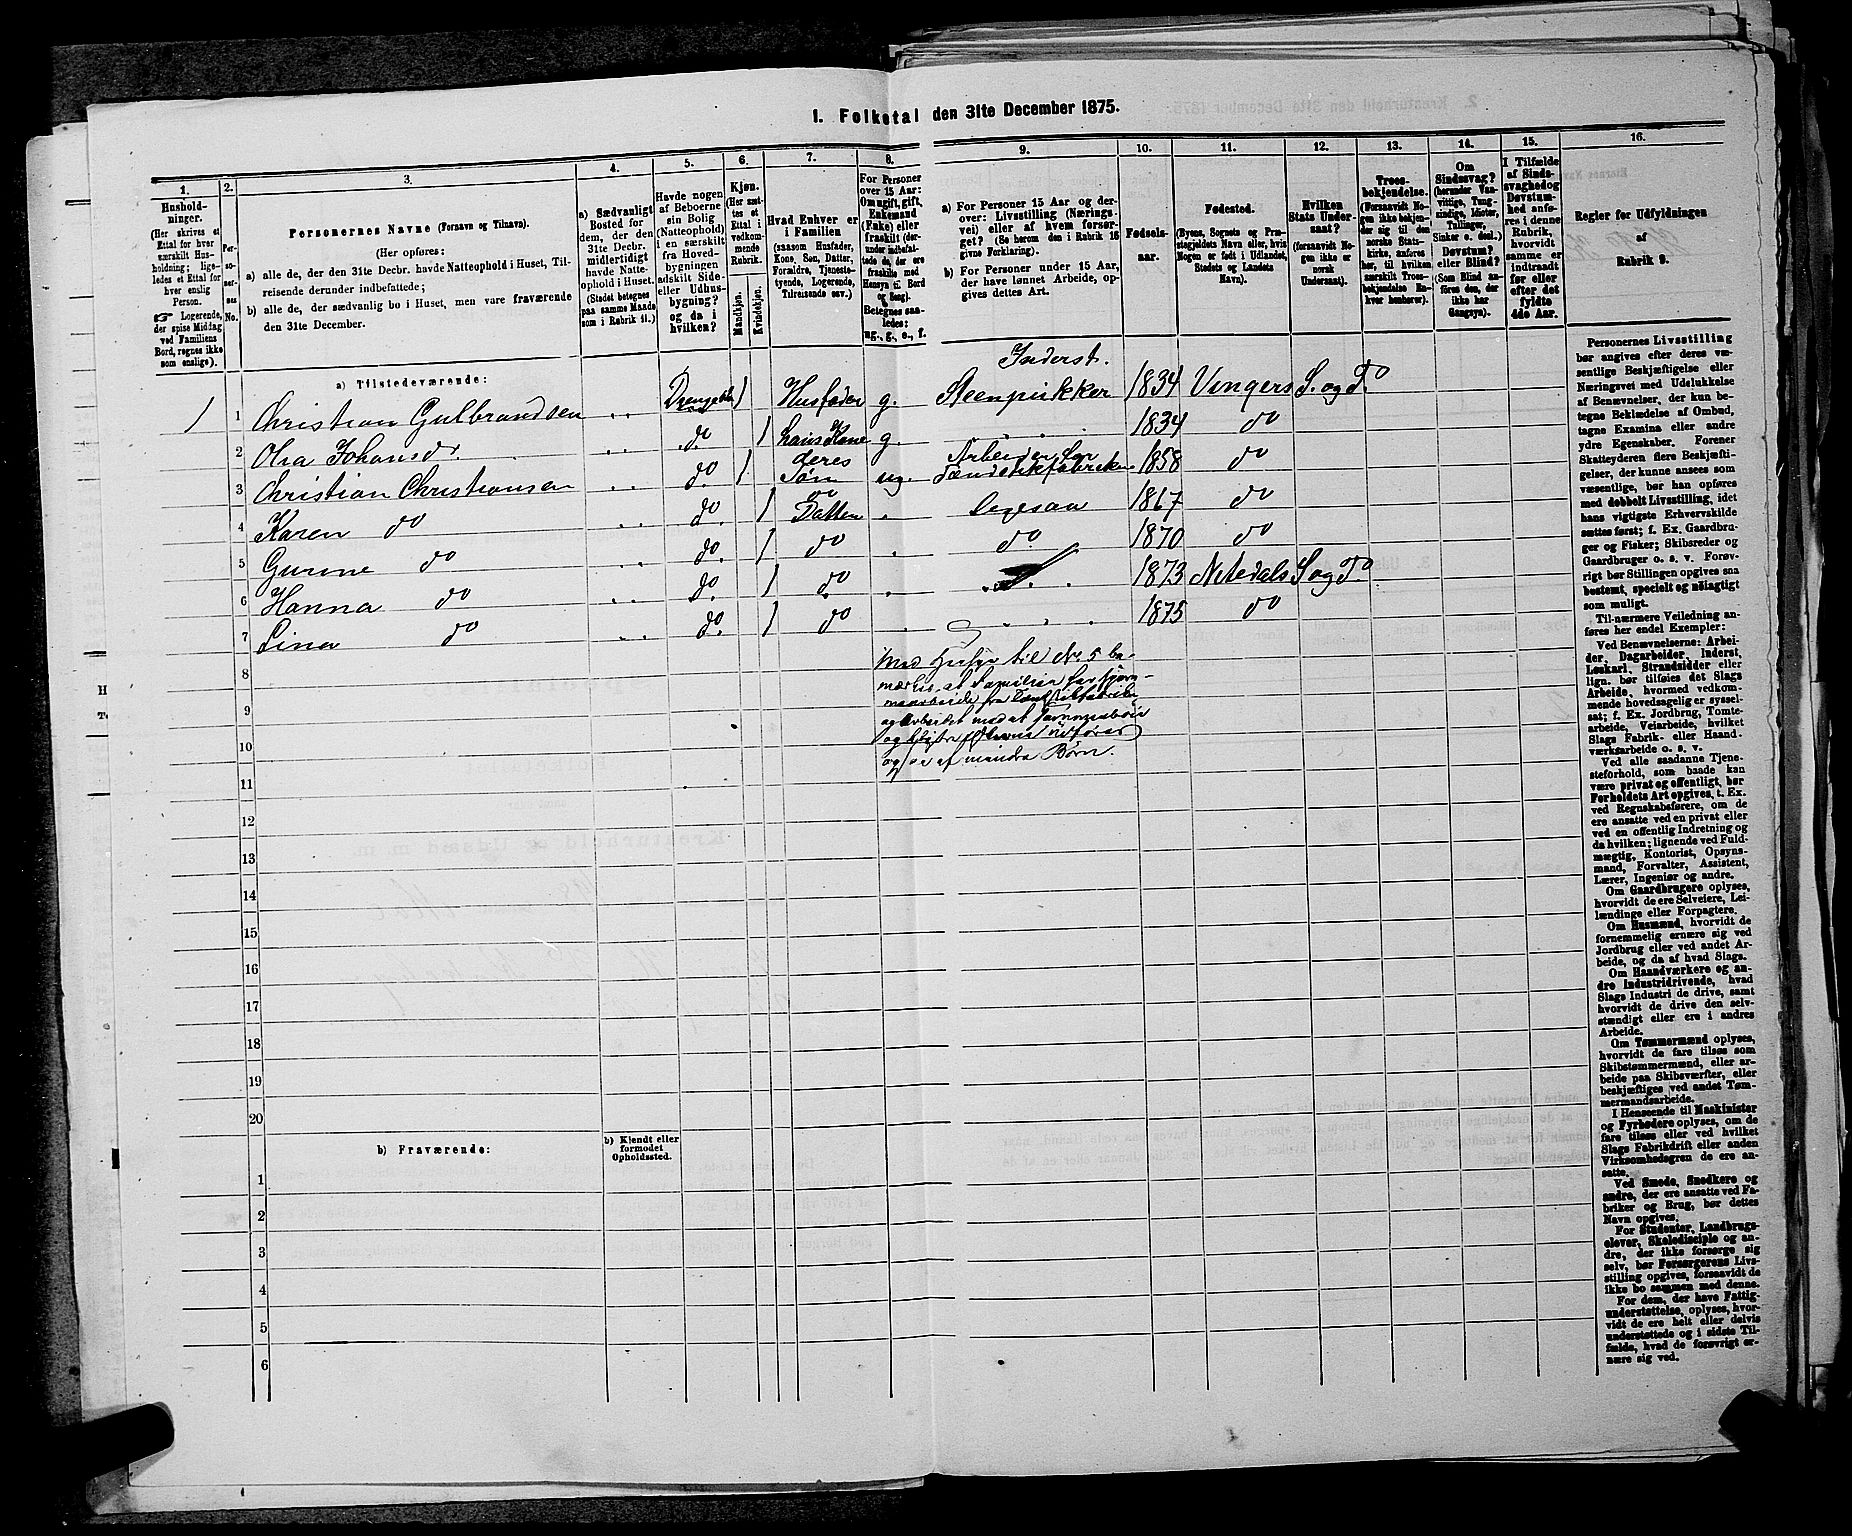 1. Folketal den 31te December 1875.
1.
Hushold-
ninger.
(Her skrives et
Ettal for hver
særskilt Hus-
holdning; lige-
ledes et Ettal for
hver enslig
Person.
☞ Logerende,
der spise Middag
ved Familiens
Bord, regnes ikke
som enslige).
2.
Per-
so-
ner-
nes
No.
3.
Personernes Navne (Fornavn og Tilnavn).
(Her opføres:
a) alle de, der den 31te Decbr. havde Natteophold i Huset, Til-
reisende derunder indbefattede;
b) alle de, der sædvanlig bo i Huset, men vare fraværende
den 31te December.
4.
a) Sædvanligt
Bosted for
dem, der den
31te Decbr.
midlertidigt
havde Natte-
ophold i Huset.
(Stedet betegnes
paa samme Maade
som i Rubrik 11.)
5.
Havde nogen
af Beboerne
sin Bolig
(Natteophold)
i en særskilt
fra Hoved-
bygningen
adskilt Side-
eller Udhus-
bygning?
og da i
hvilken?
6.
Kjøn.
(Her sæt-
tes et
Ettal i
vedkom-
mende
Rubrik.
Mandkjøn.
Kvindekjøn.
7.
Hvad Enhver er
i Familien
(saasom Husfader,
Kone, Søn, Datter,
Forældre, Tjeneste-
tyende, Logerende,
Tilreisende osv.)
8.
For Personer
over 15 Aar:
Om ugift, gift,
Enkemand
(Enke) eller
fraskilt (der-
under indbefat-
tede de, der ere
fraskilte med
Hensyn til Bord
og Seng).
Betegnes saa-
ledes:
ug., g., e., f.
9.
a) For Personer 15 Aar og der-
over: Livsstilling (Nærings-
vei) eller af hvem forsør-
get? (Se herom den i Rubrik 16
givne Forklaring).
b) For Personer under 15 Aar,
der have lønnet Arbeide, op-
gives dettes Art.
10.
Fødsels-
aar.
11.
Fødested.
(Byens, Sognets og Præ-
stegjeldets Navn eller, hvis
Nogen er født i Udlandet,
Stedets og Landets
Navn).
12.
Hvilken
Stats Under-
saat?
(forsaavidt No-
gen ikke er
norsk
Undersaat).
13.
Troes-
bekjendelse.
(Forsaavidt No-
gen ikke bekjen-
der sig til den
norske Stats-
kirke, anføres
her, til hvilken
særskilt Troes-
bekjendelse En-
hver henhører).
14.
Om
Sindssvag?
(herunder Van-
vittige, Tung-
sindige, Idioter,
Tullinger,
Sinker o. desl.)
Døvstum?
eller Blind?
(Som Blind an-
føres den, der
ikke har
Gangsyn).
15.
I Tilfælde
af Sinds-
svaghed og
Døvstum-
hed anfø-
res i denne
Rubrik,
hvorvidt
samme er
indtraadt
før eller
efter det
fyldte
4de Aar.
16.
Regler for Udfyldningen
af
Rubrik 9.
a) Tilstedeværende:
Inderst.
1 1 Christian Gulbrandsen Drengestu 1 Husfader g. Steenpikker 1834 Vingers S. og P.
2 Olia Johansd. do 1 hans Kone g. 1834 do
3 Christian Christiansen do 1 deres Søn ug. Arbeider for Tændstikfabriken 1858 do
4 Karen do do 1 do Datter Legesaa 1867 do
5 Gurine do do 1 do do 1870 do
6 Hanna do do 1 do 1873 Nitedals S og P
7 Lina do do 1 do 1875 do
Med Hensyn til No 5 be-
mærkes, at Familien har hjem-
mearbeide fra Tændstikfabriken
og Arbeidet med at
og udføres
og/ee af mindre Børn.
8
9
10
11
12
13
14
15
16
17
18
19
20
b) Fraværende:
b) Kjendt eller
formodet
Opholdssted.
1
2
3
4
5
6
Personernes Livsstilling
bør angives efter deres væ-
sentlige Beskjæftigelse eller
Næringsvei med Udelukkelse
af Benævnelser, der kun be-
tegne Beklædelse af Ombud,
tagne Examina eller andre
ydre Egenskaber. Forener
Skatteyderen flere Beskjæfti-
gelser, der kunne ansees som
væsentlige, bør han opføres
med dobbelt Livsstilling, idet
hans vigtigste Erhvervskilde
sættes først; f. Ex. Gaardbru-
ger og Fisker; Skibsreder og
Gaardbruger o. s. v. Forøv-
rigt bør Stillingen opgives saa
bestemt, specielt og nøiagtigt
som muligt.
Til nærmere Veiledning an-
føres her endel Exempler:
Ved Benævnelserne: Arbei-
der, Dagarbeider, Inderst,
Løskarl, Strandsidder eller
lign. bør tilføies det Slags
Arbeide, hvormed vedkom-
mende hovedsagelig er syssel-
sat; f. Ex. Jordbrug, Tomte-
arbeide, Veiarbeide, hvilket
Slags Fabrik- eller Haand-
værksarbeide o. s. v.
Ved alle saadanne Tjene-
steforhold, som baade kan
være privat og offentligt, bør
Forholdets Art opgives, t. Ex.
ved Regnskabsførere, om de
ere ansatte ved en privat eller
ved en offentlig Indretning og
da hvilken; lignende ved Fuld-
mægtig, Kontorist, Opsyns-
mand, Forvalter, Assistent,
Lærer, Ingeniør og andre.
Om Gaardbrugere oplyses,
hvorvidt de ere Selveiere, Lei-
lændinge eller Forpagtere.
Om Husmænd, hvorvidt de
fornemmelig ernære sig ved
Jordbrug eller ved andet Ar-
beide, og da af hvad Slags.
Om Haandværkere og an-
dre Industridrivende, hvad
Slags Industri de drive, samt
hvorvidt de drive den selv-
stændigt eller ere i andres
Arbeide.
Om Tømmermænd oplyses,
hvorvidt de fare tilsøs som
Skibstømmermænd, eller ar-
beide paa Skibsværfter, eller
beskjæftiges ved andet Tøm-
mermandsarbeide.
I Henseende til Maskinister
og Fyrbødere oplyses, om de
fare tilsøs eller ved hvilket
Slags Fabrikdrift eller anden
Virksomhedsgren de ere an-
satte.
Ved Smede, Snedkere og
andre, der ere ansatte ved Fa-
briker og Brug, bør dettes
Navn opgives.
For Studenter, Landbrugs-
elever, Skoledisciple og an-
dre, der ikke forsørge sig
selv, bør Forsørgerens Livs-
stilling opgives, forsaavidt de
ikke bo sammen med denne.
For dem, der have Fattig-
understøttelse, oplyses, hvor-
vidt de ere helt eller delvis
understøttede og i sidste Til-
fælde, hvad de forøvrigt er-
nære sig ved.